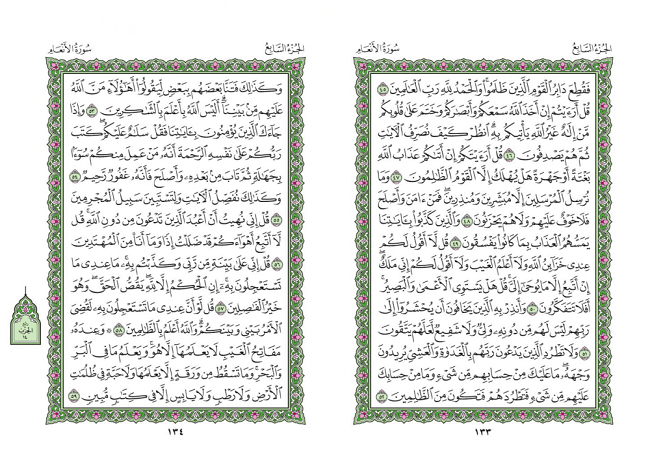 الجزء السابع
سورة الأنعام
فَقُطِعَ دَابِرُ ٱلْقَوْمِ ٱلَّذِينَ ظَلَمُوا۟ وَٱلْحَمْدُ لِلَّهِ رَبِّ ٱلْعَـٰلَمِينَ ٤٥
قُلْ أَرَءَيْتُمْ إِنْ أَخَذَ ٱللَّهُ سَمْعَكُمْ وَأَبْصَـٰرَكُمْ وَخَتَمَ عَلَىٰ قُلُوبِكُم
مَّنْ إِلَـٰهٌ غَيْرُ ٱللَّهِ يَأْتِيكُم بِهِ ٱنظُرْ كَيْفَ نُصَرِّفُ ٱلْـَٔايَـٰتِ
ثُمَّ هُمْ يَصْدِفُونَ ٤٦ قُلْ أَرَءَيْتَكُمْ إِنْ أَتَىٰكُمْ عَذَابُ ٱللَّهِ
بَغْتَةً أَوْ جَهْرَةً هَلْ يُهْلَكُ إِلَّا ٱلْقَوْمُ ٱلظَّـٰلِمُونَ ٤٧ وَمَا
نُرْسِلُ ٱلْمُرْسَلِينَ إِلَّا مُبَشِّرِينَ وَمُنذِرِينَ فَمَنْ ءَامَنَ وَأَصْلَحَ
فَلَا خَوْفٌ عَلَيْهِمْ وَلَا هُمْ يَحْزَنُونَ ٤٨ وَٱلَّذِينَ كَذَّبُوا۟ بِـَٔايَـٰتِنَا
يَمَسُّهُمُ ٱلْعَذَابُ بِمَا كَانُوا۟ يَفْسُقُونَ ٤٩ قُل لَّآ أَقُولُ لَكُمْ
عِندِى خَزَآئِنُ ٱللَّهِ وَلَآ أَعْلَمُ ٱلْغَيْبَ وَلَآ أَقُولُ لَكُمْ إِنِّى مَلَكٌ
إِنْ أَتَّبِعُ إِلَّا مَا يُوحَىٰٓ إِلَىَّ قُلْ هَلْ يَسْتَوِى ٱلْأَعْمَىٰ وَٱلْبَصِيرُ
أَفَلَا تَتَفَكَّرُونَ ٥٠ وَأَنذِرْ بِهِ ٱلَّذِينَ يَخَافُونَ أَن يُحْشَرُوٓا۟ إِلَىٰ
رَبِّهِمْ لَيْسَ لَهُم مِّن دُونِهِۦ وَلِىٌّ وَلَا شَفِيعٌ لَّعَلَّهُمْ يَتَّقُونَ
٥١ وَلَا تَطْرُدِ ٱلَّذِينَ يَدْعُونَ رَبَّهُم بِٱلْغَدَوٰةِ وَٱلْعَشِىِّ يُرِيدُونَ
وَجْهَهُۥ مَا عَلَيْكَ مِنْ حِسَابِهِم مِّن شَىْءٍ وَمَا مِنْ حِسَابِكَ
عَلَيْهِم مِّن شَىْءٍ فَتَطْرُدَهُمْ فَتَكُونَ مِنَ ٱلظَّـٰلِمِينَ ٥٢
١٣٣
الجزء السابع
سورة الأنعام
وَكَذَٰلِكَ فَتَنَّا بَعْضَهُم بِبَعْضٍ لِّيَقُولُوٓا۟ أَهَـٰٓؤُلَآءِ مَنَّ ٱللَّهُ
عَلَيْهِم مِّنۢ بَيْنِنَآ أَلَيْسَ ٱللَّهُ بِأَعْلَمَ بِٱلشَّـٰكِرِينَ ٥٣ وَإِذَا
جَآءَكَ ٱلَّذِينَ يُؤْمِنُونَ بِـَٔايَـٰتِنَا فَقُلْ سَلَـٰمٌ عَلَيْكُمْ كَتَبَ
رَبُّكُمْ عَلَىٰ نَفْسِهِ ٱلرَّحْمَةَ أَنَّهُۥ مَنْ عَمِلَ مِنكُمْ سُوٓءًۢا
بِجَهَـٰلَةٍ ثُمَّ تَابَ مِنۢ بَعْدِهِۦ وَأَصْلَحَ فَأَنَّهُۥ غَفُورٌ رَّحِيمٌ ٥٤
وَكَذَٰلِكَ نُفَصِّلُ ٱلْـَٔايَـٰتِ وَلِتَسْتَبِينَ سَبِيلُ ٱلْمُجْرِمِينَ
٥٥ قُلْ إِنِّى نُهِيتُ أَنْ أَعْبُدَ ٱلَّذِينَ تَدْعُونَ مِن دُونِ ٱللَّهِ قُل
لَّآ أَتَّبِعُ أَهْوَآءَكُمْ قَدْ ضَلَلْتُ إِذًا وَمَآ أَنَا۠ مِنَ ٱلْمُهْتَدِينَ
٥٦ قُلْ إِنِّى عَلَىٰ بَيِّنَةٍ مِّن رَّبِّى وَكَذَّبْتُم بِهِۦ مَا عِندِى مَا
تَسْتَعْجِلُونَ بِهِۦٓ إِنِ ٱلْحُكْمُ إِلَّا لِلَّهِ يَقُصُّ ٱلْحَقَّ وَهُوَ
خَيْرُ ٱلْفَـٰصِلِينَ ٥٧ قُل لَّوْ أَنَّ عِندِى مَا تَسْتَعْجِلُونَ بِهِۦ لَقُضِىَ
ٱلْأَمْرُ بَيْنِى وَبَيْنَكُمْ وَٱللَّهُ أَعْلَمُ بِٱلظَّـٰلِمِينَ ٥٨ وَعِندَهُۥ
مَفَاتِحُ ٱلْغَيْبِ لَا يَعْلَمُهَآ إِلَّا هُوَ وَيَعْلَمُ مَا فِى ٱلْبَرِّ
وَٱلْبَحْرِ وَمَا تَسْقُطُ مِن وَرَقَةٍ إِلَّا يَعْلَمُهَا وَلَا حَبَّةٍ فِى ظُلُمَـٰتِ
ٱلْأَرْضِ وَلَا رَطْبٍ وَلَا يَابِسٍ إِلَّا فِى كِتَـٰبٍ مُّبِينٍ ٥٩
١٣٤
الحزب
١٤